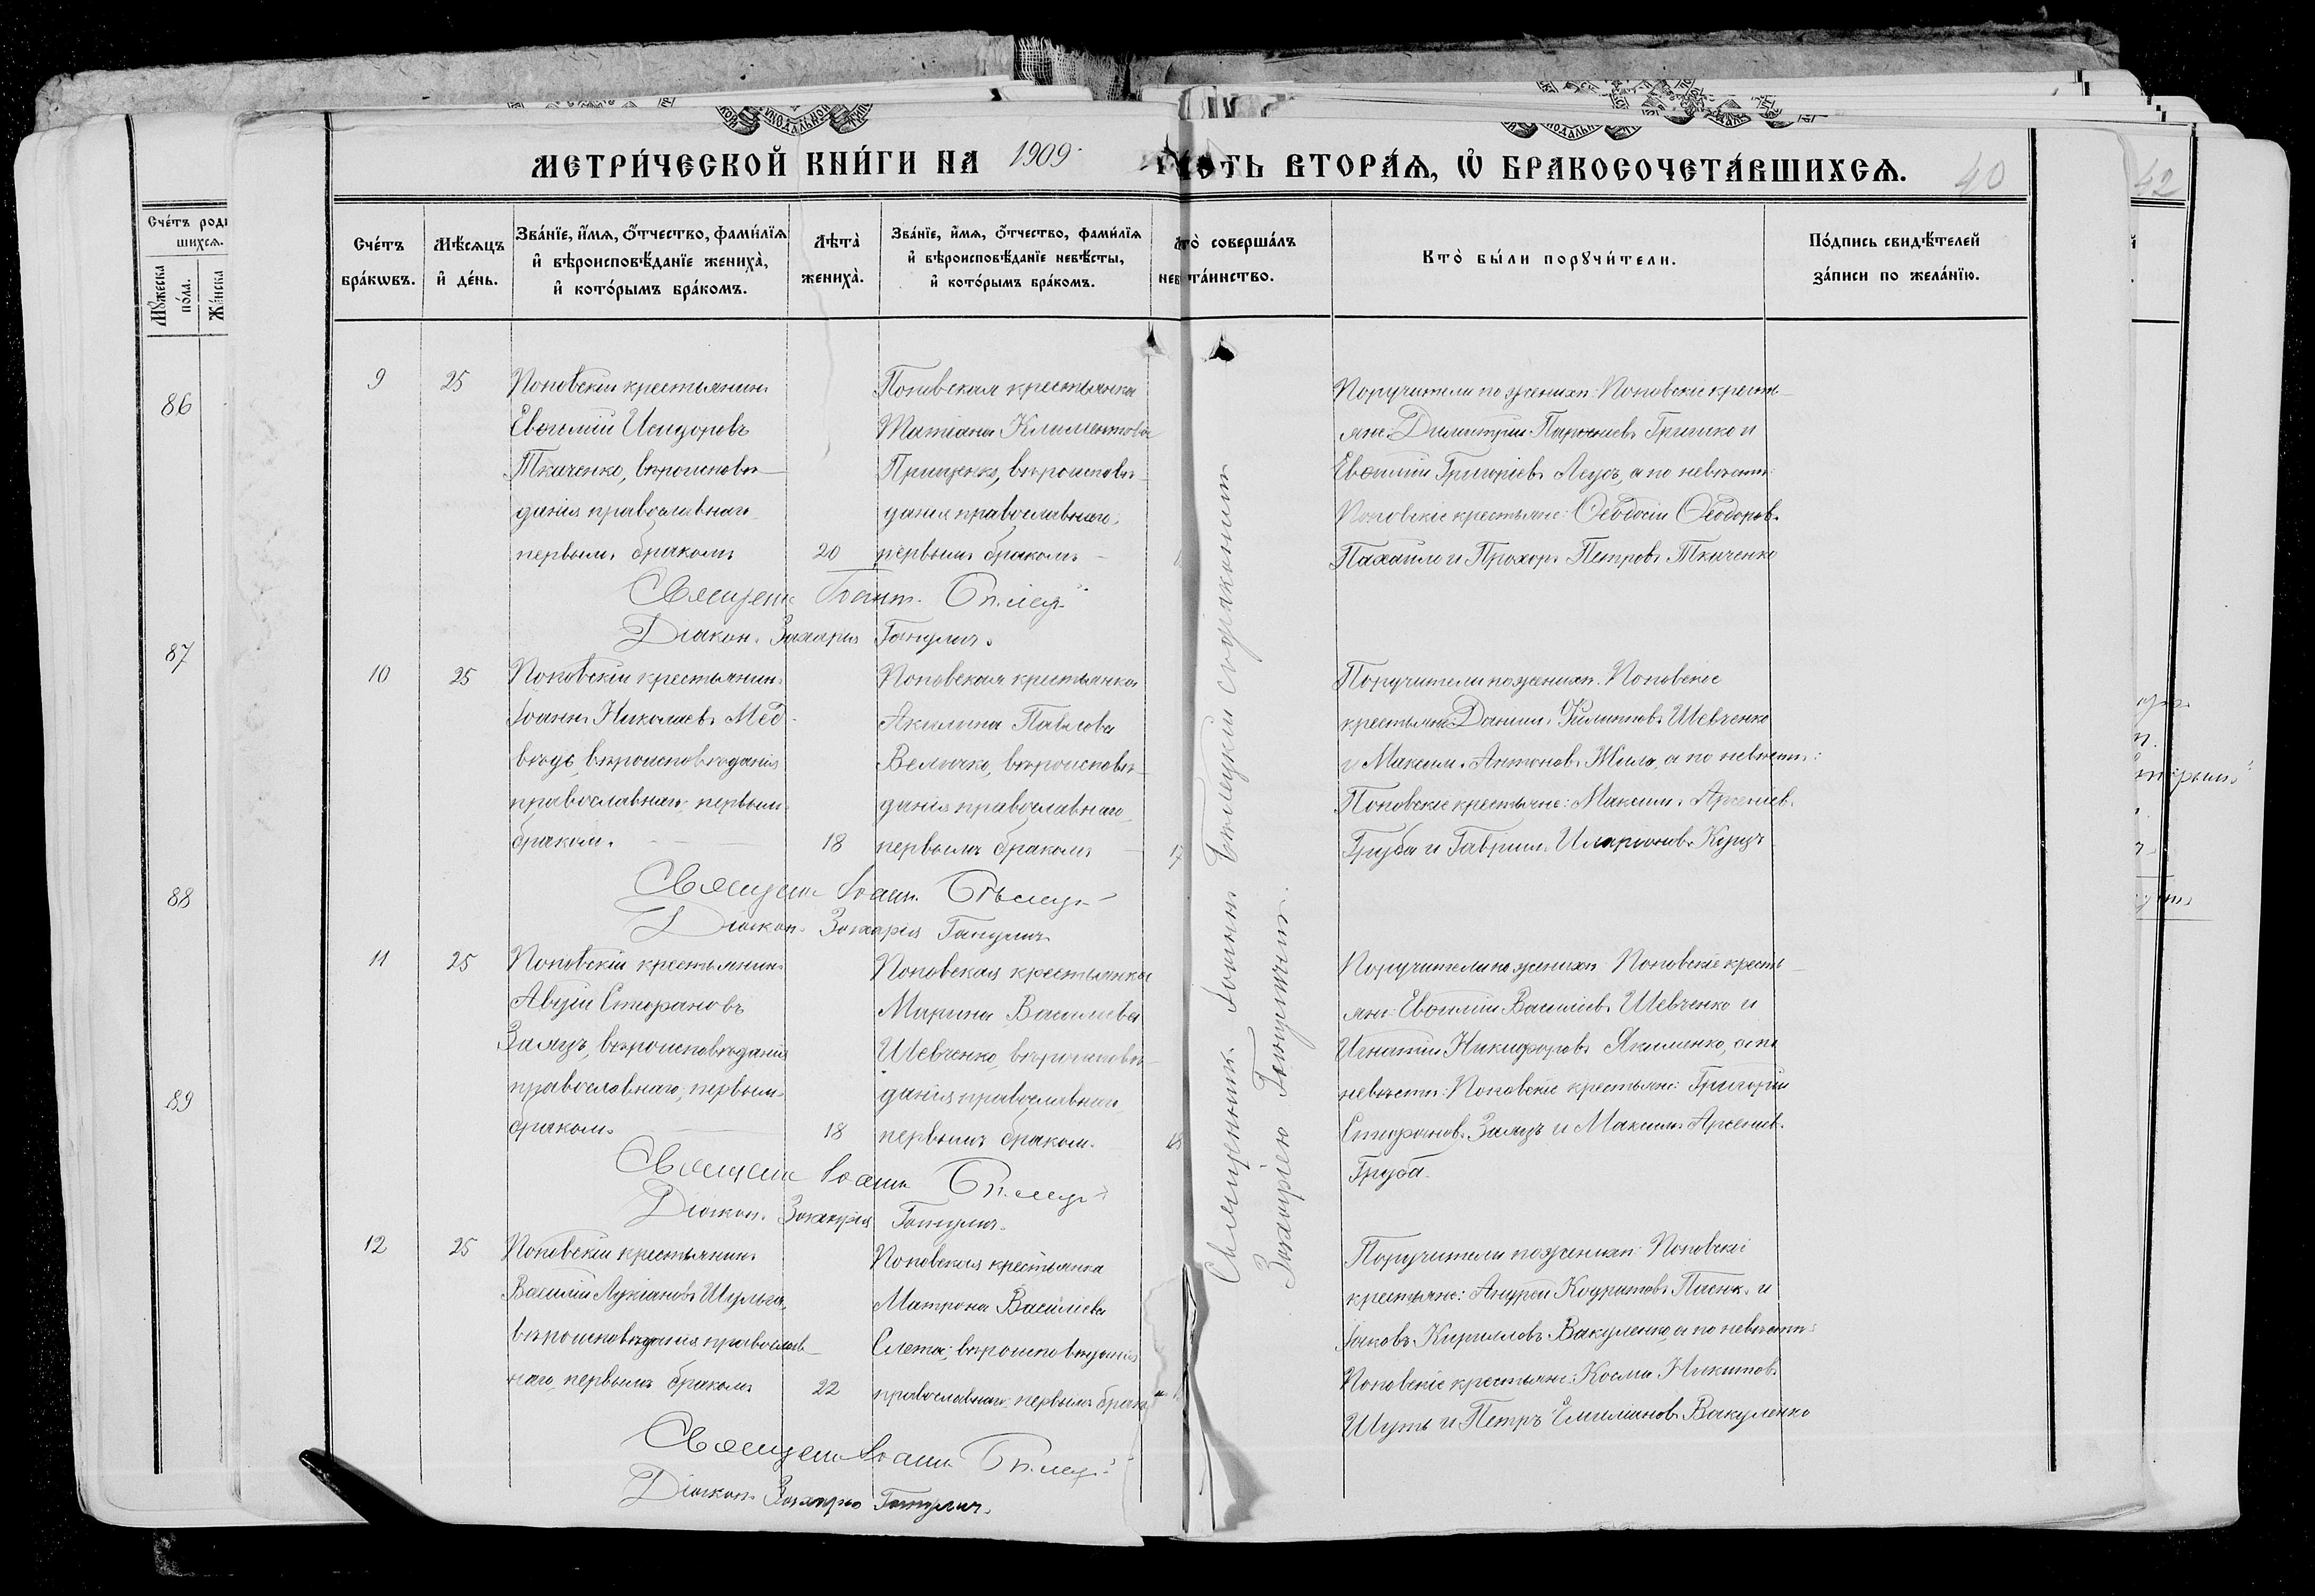 МЕТРИ́ЧЕСКОЙ КНИ́ГИ НА 1909
ВТОРА́Ѧ, Ѡ҆ БРАКОСОЧЕТА́ВШИХСѦ.
40
42
Сче́тъ роди
шихсѧ.
Мꙋ́жеска
по́ла.
Же́нска
86
87
88
89
Сче́тъ
бра́кѡвъ.
Мѣ́сѧцъ
и҆ де́нь.
Зва́нїе, и҆́мѧ, ѻ҆́тчество, фами́лїѧ
и҆ вѣроисповѣ́данїе жениха̀,
и҆ кото́рымъ бра́комъ.
Лѣта̀
жениха̀.
Зва́нїе, и҆́мѧ, ѻ҆́тчество, фами́лїѧ
и҆ вѣроисповѣ́данїе невѣ́сты,
и҆ кото́рымъ бра́комъ.
нев
совершáлъ
та́инство.
Кто̀ бы́ли порꙋчи́тели.
По́дпись свидѣ́телей
за́писи по жела́нїю.
9
25
Поповскій крестьянинъ
Евѳимій Исидоровъ
Ткаченко, вѣроисповѣ-
данія православнаго
первымъ бракомъ
20
Поповская крестьянка
Татіана Климентова
Прищенко, вѣроисповѣ-
данія православнаго,
первымъ бракомъ
Поручители по женихѣ: Поповскіе кресть-
яне: Димитрій Парѳеніевъ Гришко и
Евѳимій Григоріевъ Леусъ, а по невѣстѣ:
Поповскіе крестьяне: Ѳеодосій Ѳеодоровъ
и Прохоръ Петровъ Ткаченко
Священн. Іоанн.
Діакон. Захарія
10
25
Поповскій крестьянинъ
Іоаннъ Николаевъ Мед-
вѣдь, вѣроисповѣданія
православнаго, первымъ
бракомъ.
18
Поповская крестьянка
Акилина Павлова
Величко, вѣроисповѣ-
данія православнаго
первымъ бракомъ
17
Поручители по женихѣ: Поповскіе
крестьяне: Даніилъ Филиповъ Шевченко
и Максимъ Антоновъ Жила, а по невѣстѣ:
Поповскіе крестьяне: Максимъ Арсеніевъ
Груба и Гавріилъ Иларіоновъ
Священн. Іоанн.
Діакон. Захарія
11
25
Поповскій крестьянинъ
Авдій Стефановъ
Заяцъ, вѣроисповѣданія
православнаго, первымъ
бракомъ.
18
Поповская крестьянка
Марина Василіева
Шевченко, вѣроисповѣ-
данія православнаго,
первымъ бракомъ.
18
Поручители по женихѣ: Поповскіе кресть-
яне: Евѳимій Василіевъ Шевченко и
Игнатій Никифоровъ Якименко, а по
невѣстѣ: Поповскіе крестьяне: Григорій
Стефановъ Заяцъ и Максимъ Арсеніев.
Груба.
Священн. Іоанн
Діакон. Захарія
12
25
Поповскій крестьянинъ
Василій Лукіановъ Шульга,
вѣроисповѣданія православ-
наго, первымъ бракомъ
22
Поповская крестьянка
Матрона Василіева
Слета, вѣроисповѣданія
православнаго, первымъ брак
Поручители по женихѣ: Поповскіе
крестьяне: Андрей Кодратовъ и
Іаковъ Кирилловъ Вакуленко, а по невѣстѣ:
Поповскіе крестьяне: Косма Никитовъ
Шуть и Петръ Емиліановъ Вакуленко
Священн. Іоанн
Діакон. Захарія
Священникъ Іоаннъ съ діакономъ
Захаріею